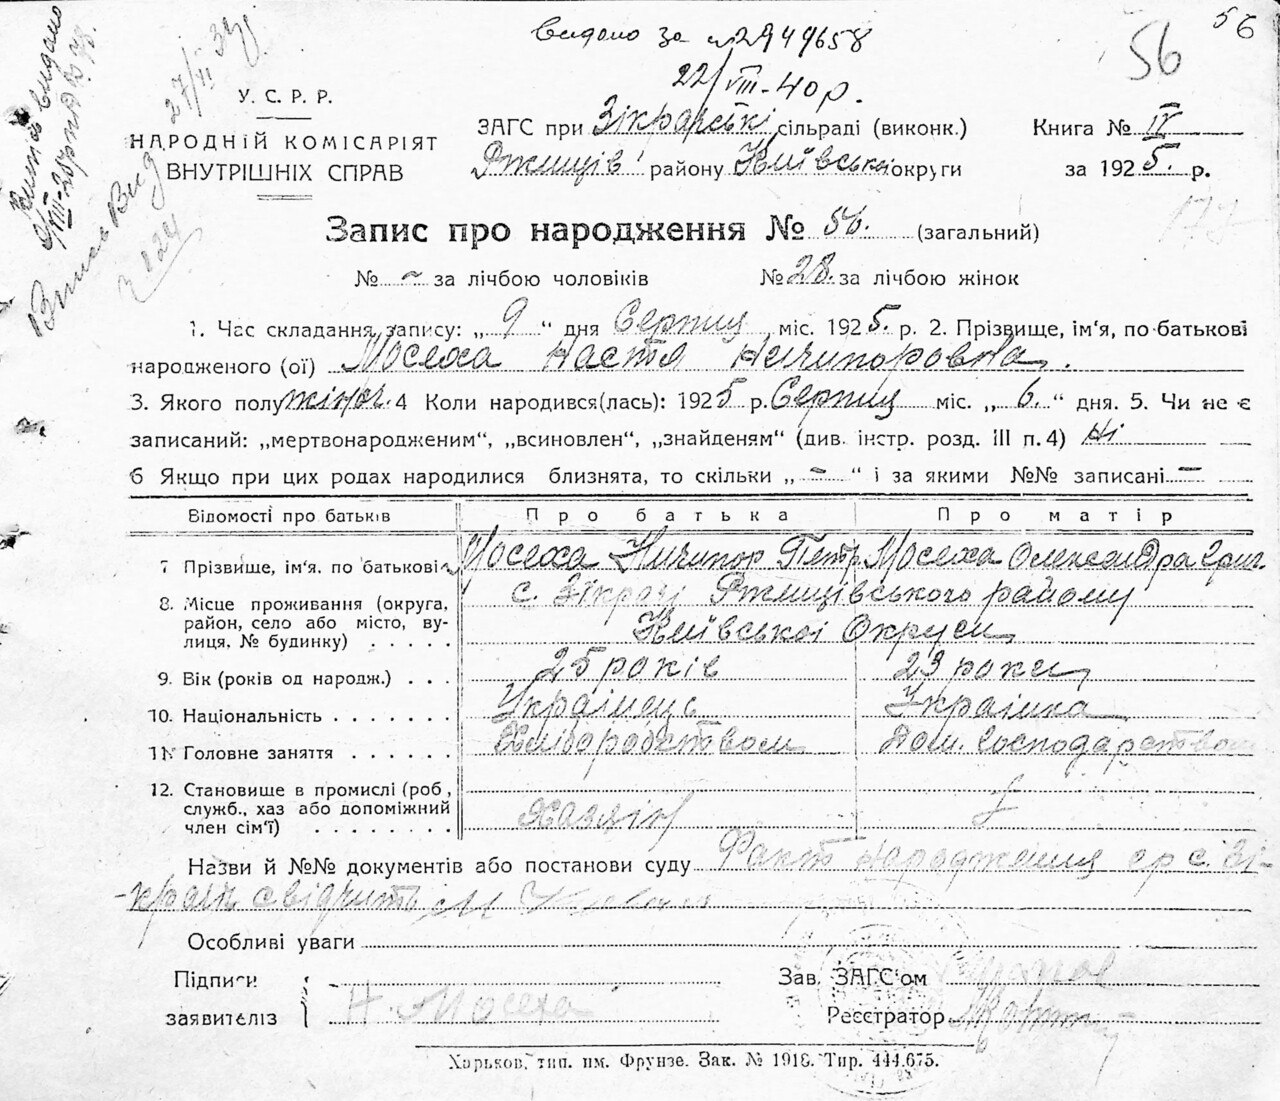 56
56
видано за № 2949658
22/VIII-40 р.
27/VI 39
У. С. Р. Р.
НАРОДНІЙ КОМІСАРІЯТ
ВНУТРІШНІХ СПРАВ
ЗАГС при Зікрарські сільраді (виконк.)
Ржищів району Київської округи
Книга № IV
за 1925 р.
177
Запис про народження № 56. (загальний)
№ - за лічбою чоловіків № 28. за лічбою жінок
1. Час складання запису: „ 9 “ дня Серпня міс. 1925. р. 2. Прізвище, ім'я, по-батькові
народженого (ої) Мосеха Настя Ничипоровна.
3. Якого полу жіноч. 4 Коли народився(лась): 1925 р. Серпня міс. „ 6. “ дня. 5. Чи не є
записаний: „мертвонародженим“, „всиновлен“, „знайденям“ (див. інстр. розд. III п. 4) Ні
6 Якщо при цих родах народилися близнята, то скільки „ - “ і за якими №№ записані -
Відомості про батьків Про батька Про матір
7 Прізвище, ім'я, по батькові Мосеха Ничипор Петр. Мосеха Олександра Григ.
8. Місце проживання (округа, район, село або місто, вулиця, № будинку) с. Зікрачі Ржищівського району
Київської Округи
9. Вік (років од народж.) 25 років 23 роки
10. Національність Українець Українка
11. Головне заняття Хліборобством Дом. Господарством
12. Становище в промислі (роб, служб., хаз або допоміжний член сім'ї) Хазяїн
Назви й №№ документів або постанови суду Факт народження ср с. Зі-
-крачі свідчить
Особливі уваги
Підписи
заявителів Н. Мосеха
Зав. ЗАГС'ом
Реєстратор
Харьков, тип. им. Фрунзе. Зак. № 1918. Тир. 444.675.